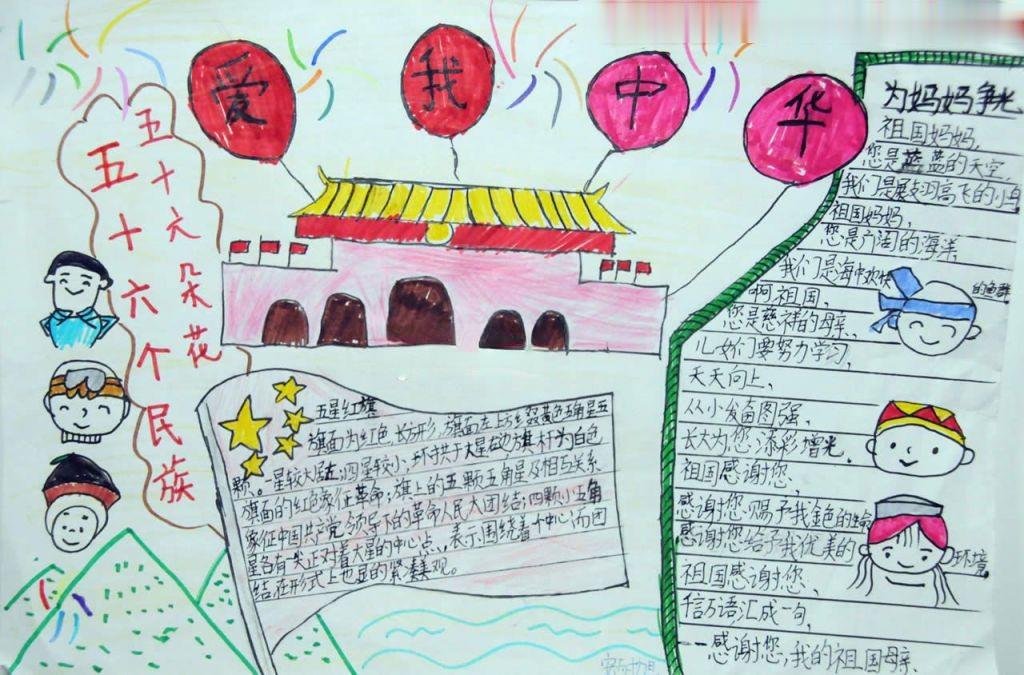 爱我中华
五十六个民族
五十六朵花
五星红旗
旗面为红色,长方形,旗面左上方缀黄色五角星五
颗。一星较大居左,四星较小,环守共于大星右边旗杆为白色
旗面的红色象征革命;旗上的五颗五角星及相互关系
象征中国共产党领导下的革命人民大团结;四颗小五角
星各有一尖正对着大星的中心点、表示围绕着一个中心而团
结在形式上也显的紧凑美观。
为妈妈争光
祖国妈妈,
您是蓝蓝的天空,
我们是展翅高飞的小鸟
祖国妈妈,
您是广阔的海洋
我们是海中欢快的鱼群
啊祖国,
您是慈祥的母亲、
儿女们要努力学习,
天天向上、
从小发奋图强、
长大为您添彩增光.
祖国感谢您、
感谢您赐予我金色的
感谢您给予我优美的环境,
祖国感谢您、
千言万语汇成一句,
感谢您,我的祖国母亲.